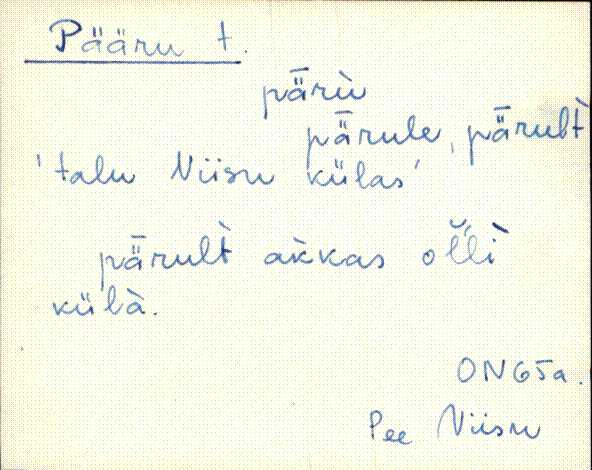 Pääru t.
pǟrù
pǟrule, pǟrult
'talu Niisu külas'
pǟrult akkas ol̆l̆ì
külà.
ONGSa.
Pee Niisu